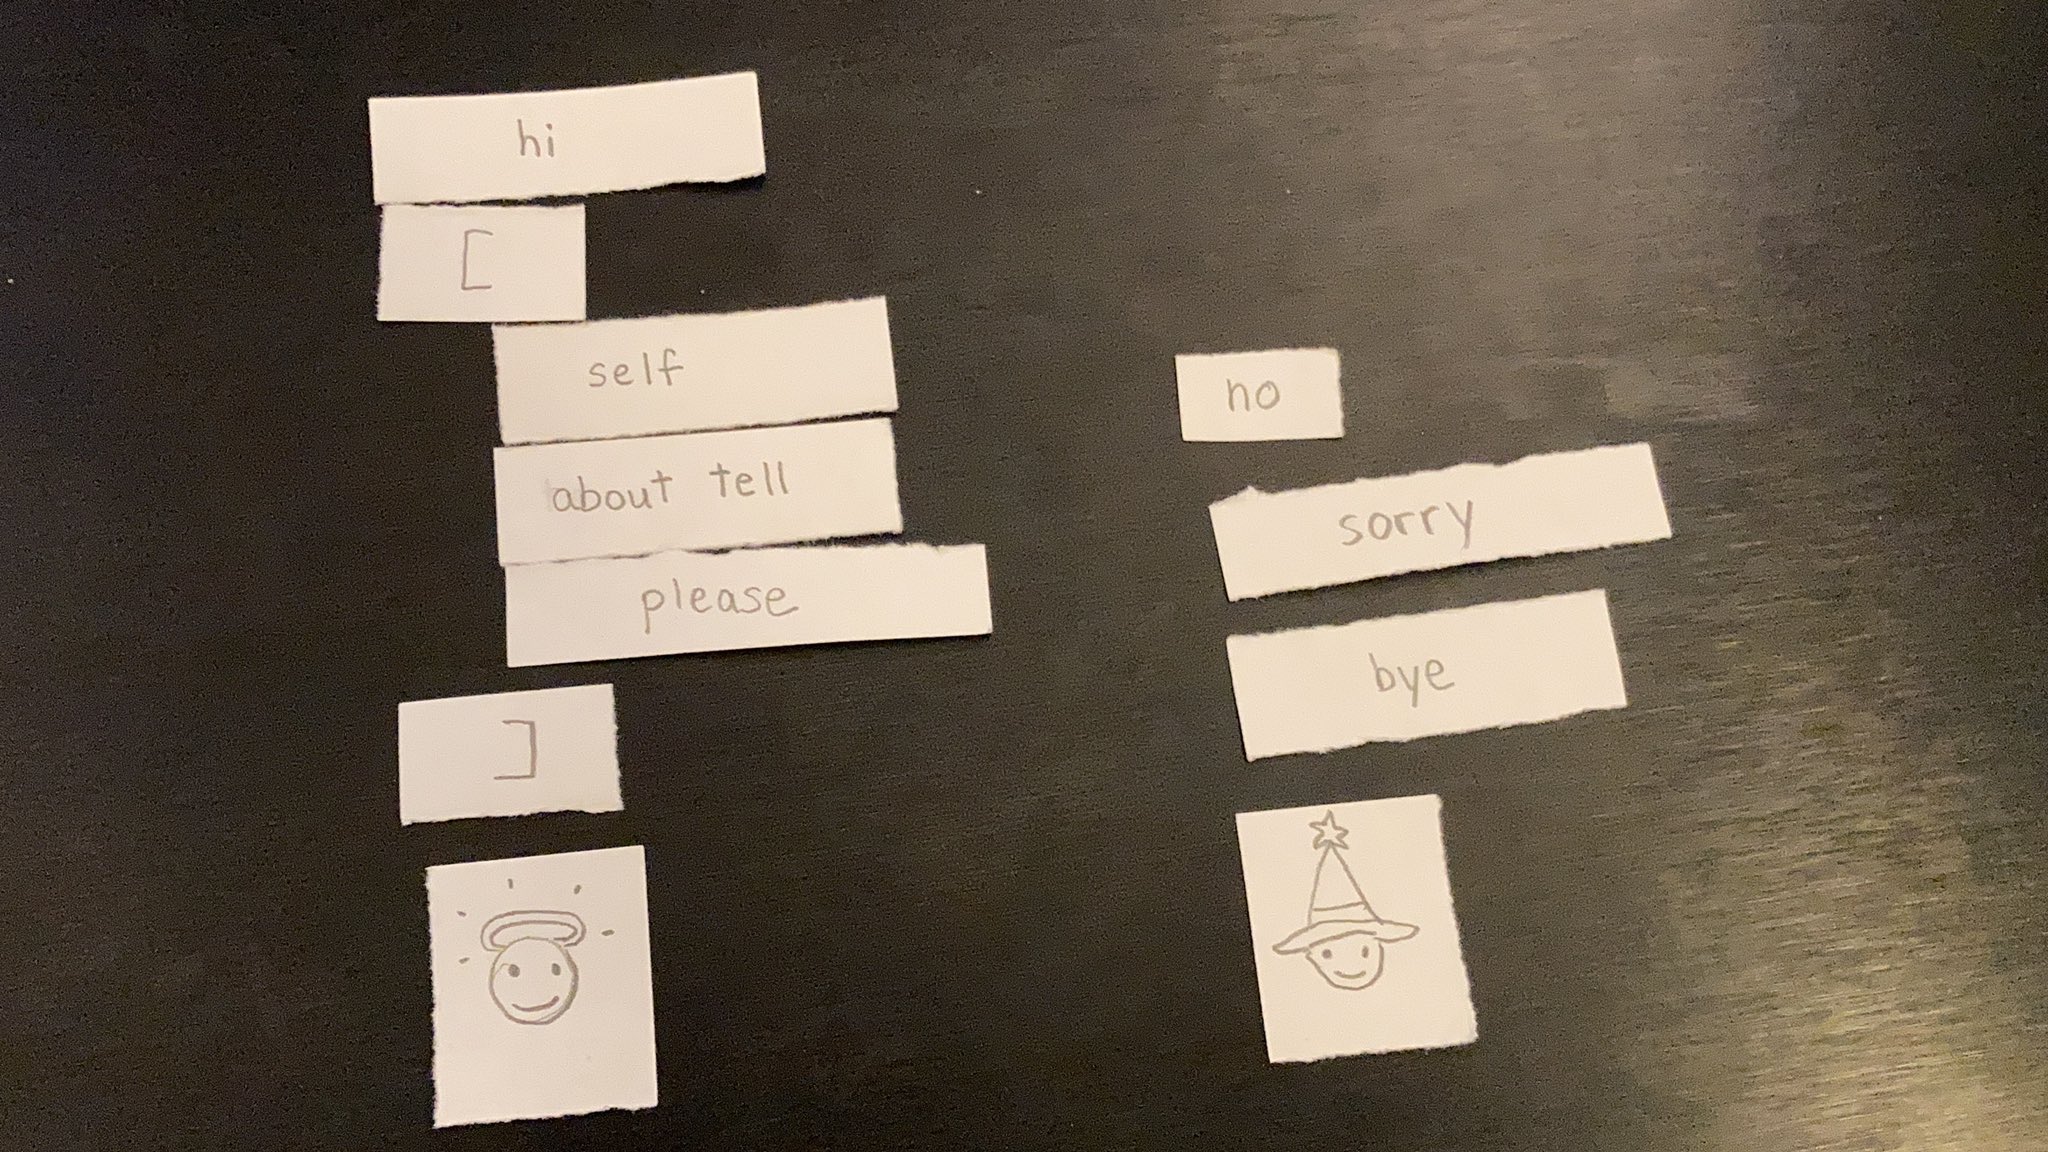 hi
[
self
about tell
please
]
no
sorry
bye